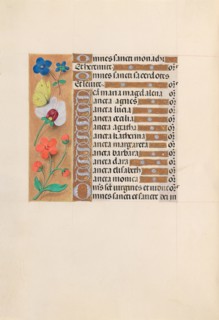 Omnes sancti monachi
et heremite. or
Omnes sancti sacerdotes
et levite. or
Sancta maria magdalena or
Sancta agnes or
Sancta lucia or
Sancta cecilia or
Sancta agatha or
Sancta katherina or
Sancta margareta or
Sancta barbara or
Sancta clara or
Sancta elisabeth or
Sancta monica or
Oms sce virgines et vidue or
Omnes sancti et sancte dei in